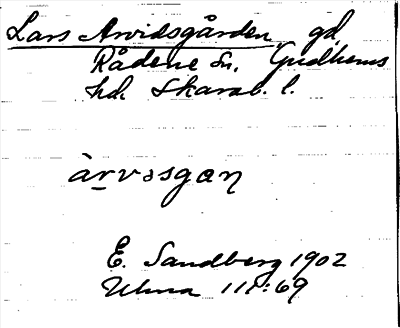 Lars Arvidsgården gd
Rådene Sn. Gudhems
hd. Skarab. l.
àrvəsgan
E. Sandberg 1902
Ulma 111:69